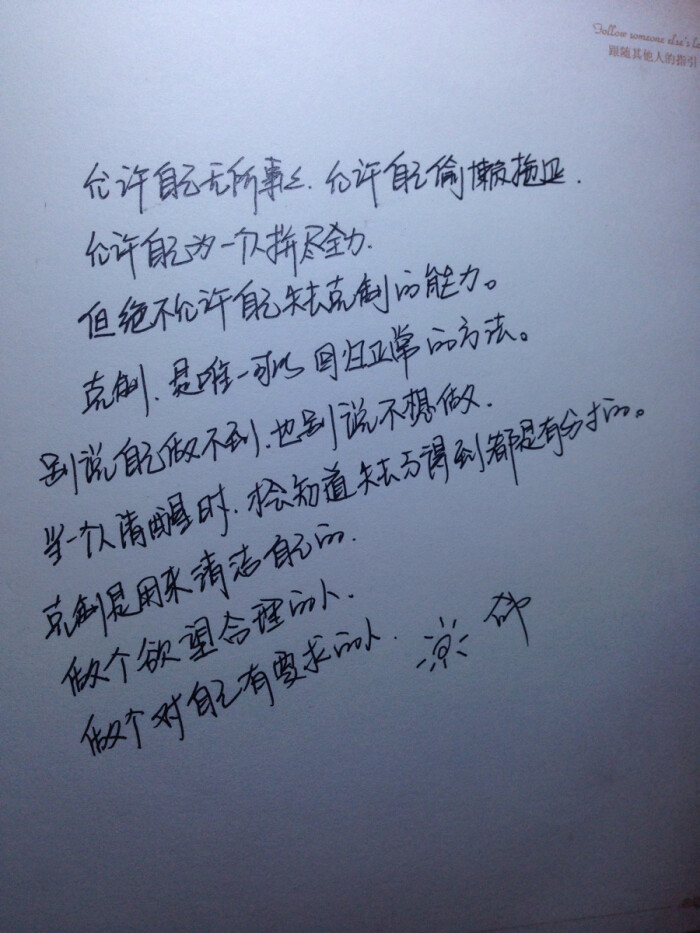 Follow someone else's le
跟随其他人的指引
允许自己无所事事、允许自己偷懒拖延.
允许自己为一个人拼尽全力.
但绝不允许自己失去克制的能力。
克制、是唯一可以回归正常的方法。
别说自己做不到、也别说不想做.
当一个人清醒时、才会知道失去与得到都是有分寸的。
克制是用来清洁自己的.
做个欲望合理的人.
做个对自己有要求的人.